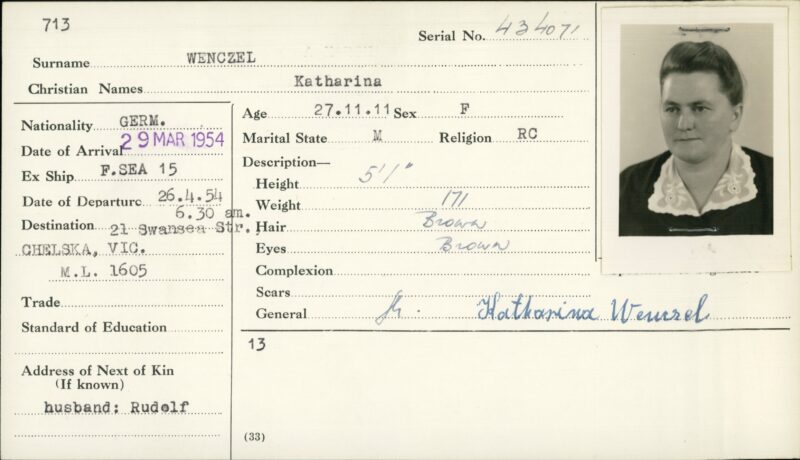 713
Serial No. 434071
Surname WENCZEL
Christian Names Katharina
Nationality GERM.
Date of Arrival 29 MAR 1954
Ex Ship F.SEA 15
Date of Departure 26.4.54
6.30 am.
Destination 21 Swansea Str.,
CHELSKA, VIC.
M.L. 1605
Trade
Standard of Education
Address of Next of Kin
(If known)
husband: Rudolf
Age 27.11.11 Sex F
Marital State M Religion RC
Description—
Height 5'1"
Weight 171
Hair Brown
Eyes Brown
Complexion
Scars
General Katharina Wenczel
13
(33)